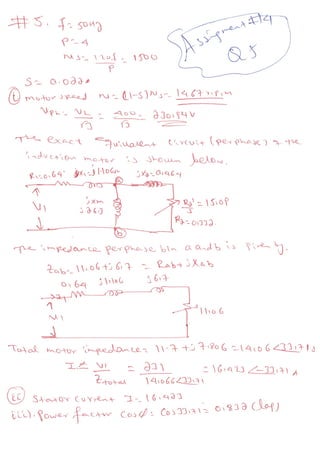 #5. f=50Hz
Assignment #4
Q5
P=4
Ns= 120f/P = 1500
S= 0.022
(i) motor speed N=(1-S)Ns= 1467 r.p.m
VPh= VL/√3 = 400/√3 = 230.94V
The exact equivalent circuit (per phase) of the
induction motor is shown below.
R1=0.64 jX1=j1.106 a jX2=0.464
V1 jXm j26.3 R2'/S = 15.09
R2=0.332
b
The impedance per phase b/n a and b is given by.
Zab= 11.06+j6.7 = Rab+jXab
0.64 j1.106 j6.7
V1 11.06
Total motor impedance= 11.7+j7.806=14.06∠33.71
I = V1/Ztotal = 231/14.066∠33.71 = 16.423∠-33.71 A
(ii) Stator current I=16.423
iii). Power factor cosφ= Cos33.71= 0.832 (lag)